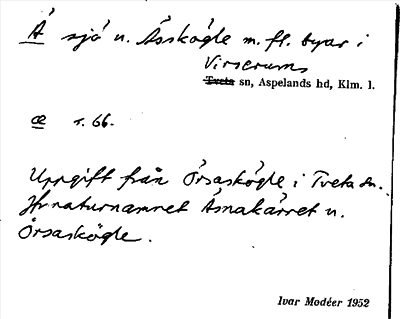 Å sjö u. Åsskögle m. fl. byar i
Virserums
Tveta sn, Aspelands hd, Klm. l.
æ s. 66.
Uppgift från Örsaskögle i Tveta sn.
Jfr naturnamnet Åsnakärret u.
Örsaskögle.
Ivar Modéer 1952